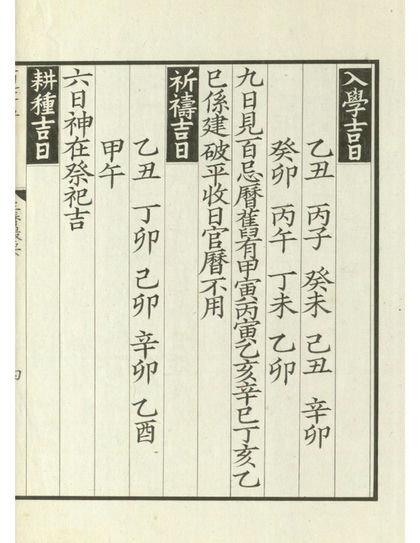 入學吉日
乙丑 丙子 癸未 己丑 辛卯
癸卯 丙午 丁未 乙卯
九日見百忌曆舊有甲寅丙寅乙亥辛巳丁亥乙
巳係建破平收日官曆不用
祈禱吉日
乙丑 丁卯 己卯 辛卯 乙酉
甲午
六日神在祭祀吉
耕種吉日